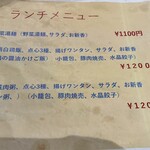 ランチメニュー
菜湯麺 (野菜湯麺、サラダ、お新香 ¥1100円
明白湯麺、点心3種、揚げワンタン、サラダ、お新香
の醤油かけご飯) (小籠包、豚肉焼売、水晶餃子)
¥1200
肉粥、点心3種、揚げワンタン、サラダ、お新香
ン粥、) (小籠包、豚肉焼売、水晶餃子)
¥120